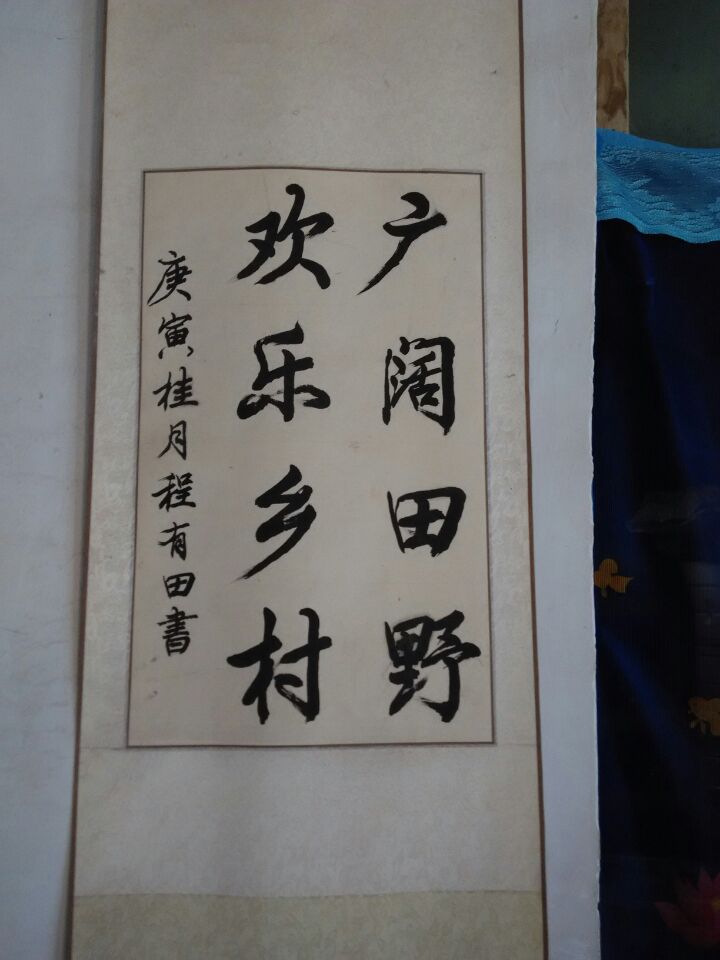 广阔田野
欢乐乡村
庚寅桂月程有田書